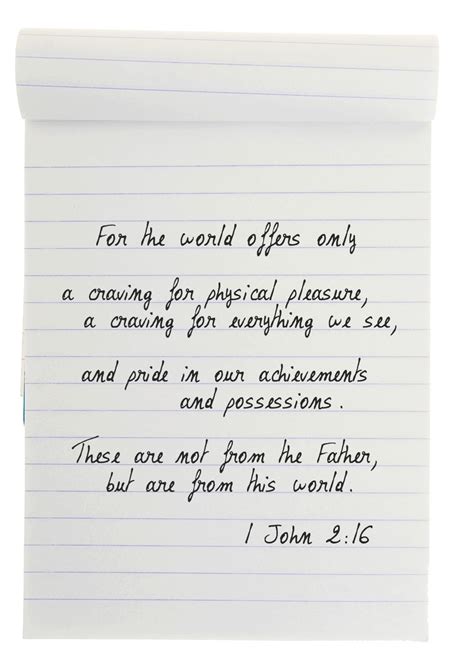 For the world offers only
a craving for physical pleasure,
a craving for everything we see,
and pride in our achievements
and possessions.
These are not from the Father,
but are from this world.
1 John 2:16